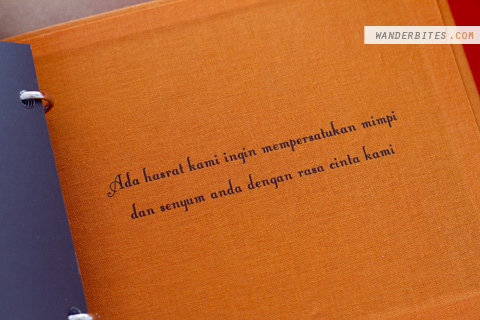 WANDERBITES.COM
Ada hasrat kami ingin mempersatukan mimpi
dan senyum anda dengan rasa cinta kami